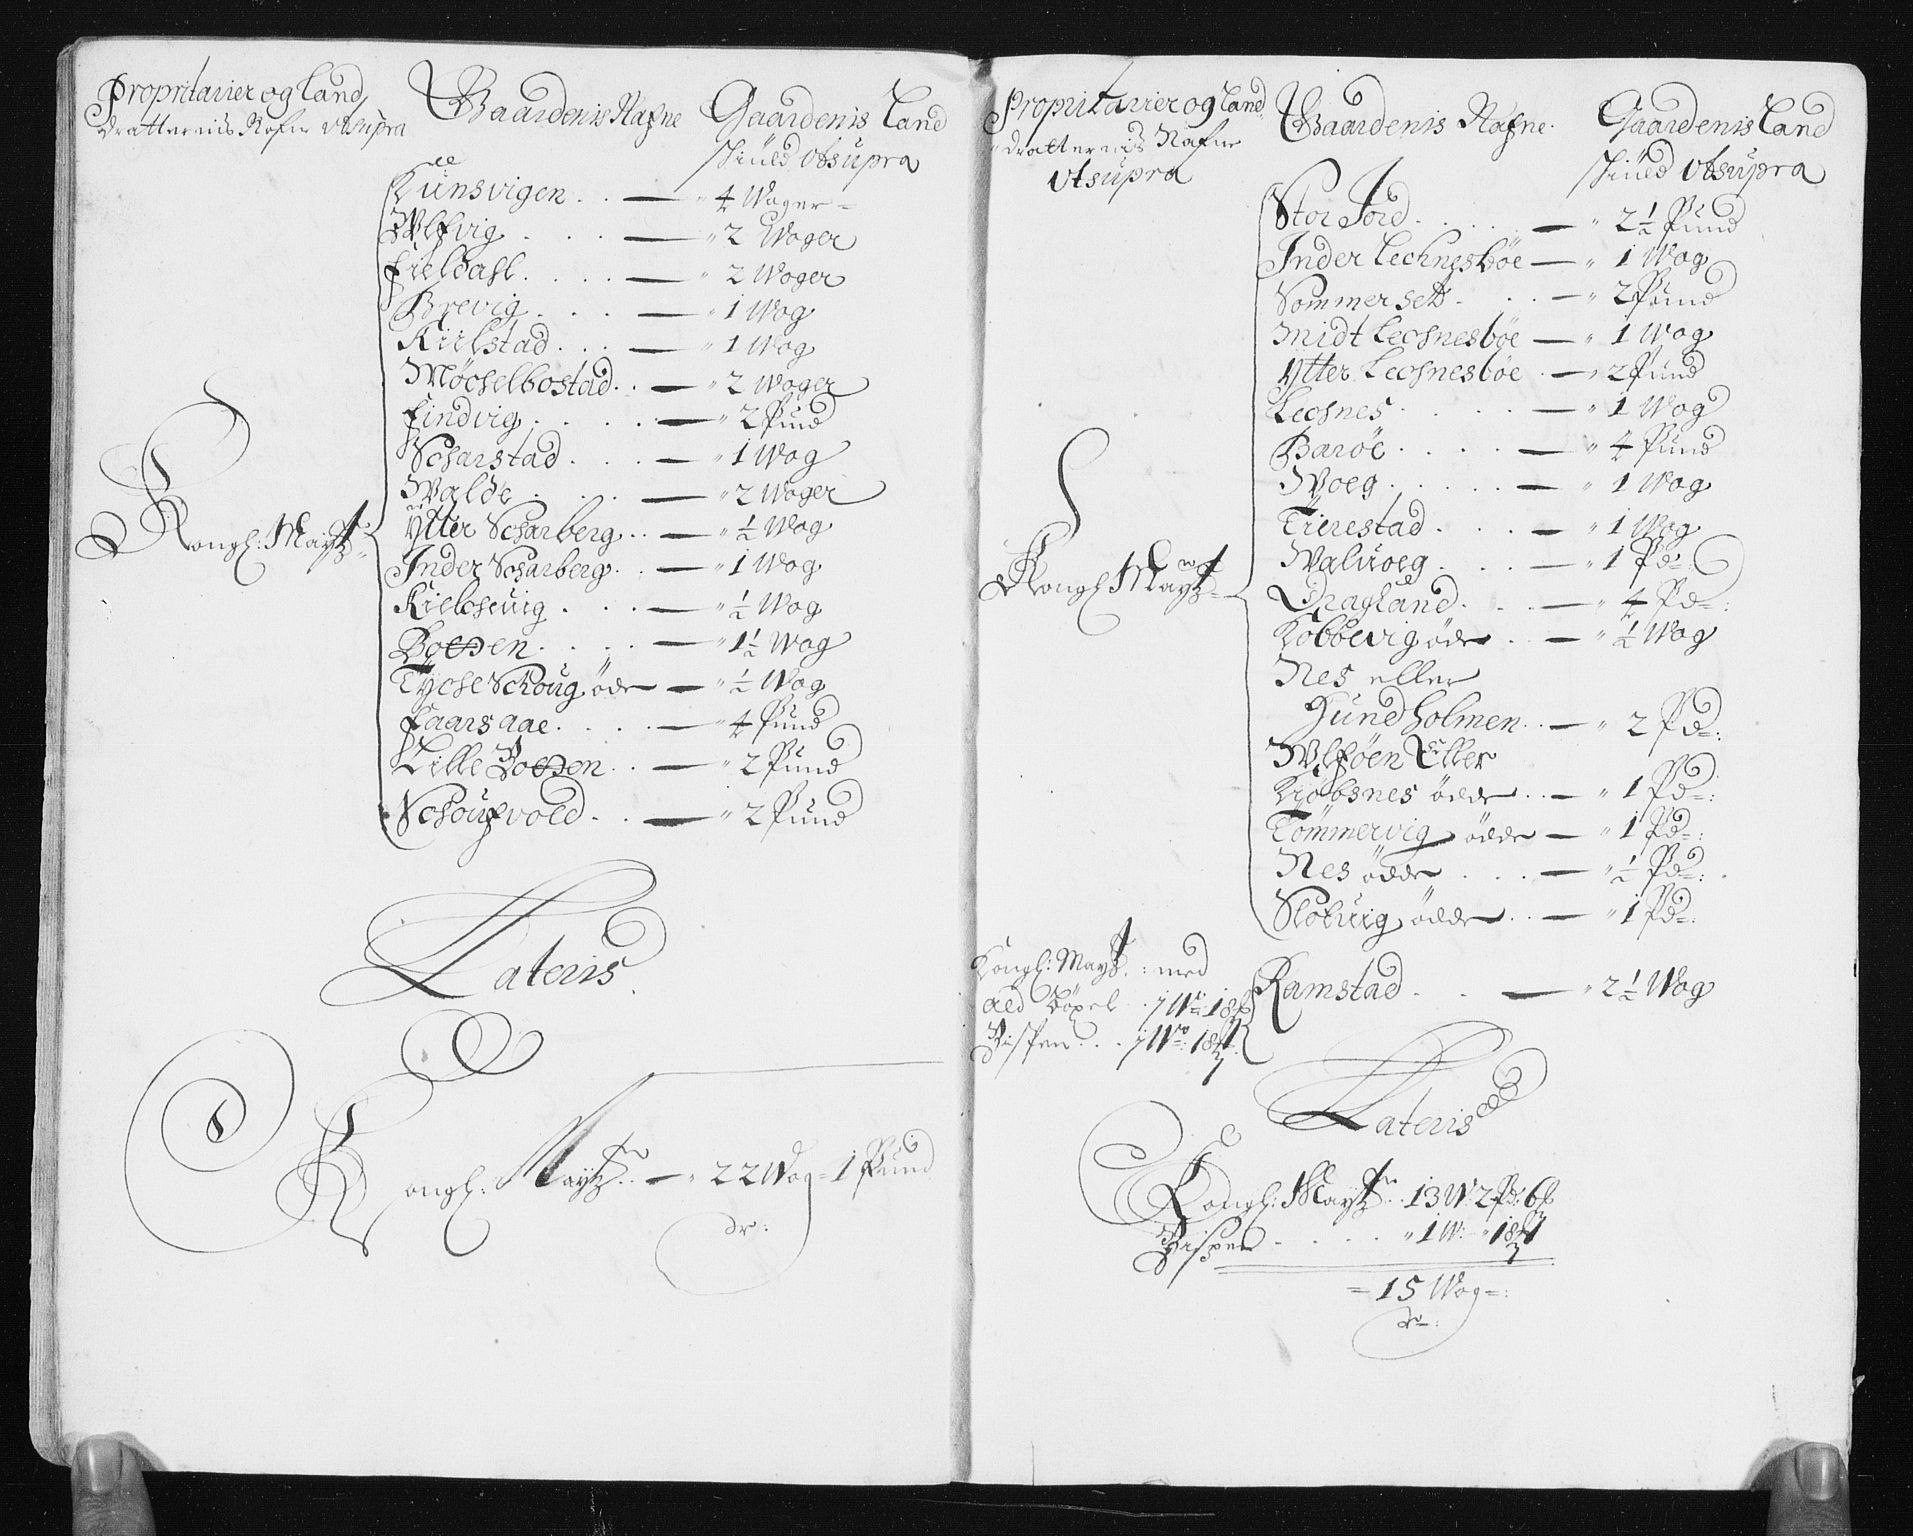 Proprietarier og Land,
dratternis Nafne vtsupra
Gaardenis Nafne
Gaardenis Land
skiüld vtsupra
Kongl: Maytz
Künsvigen . . — " 4 Woger
Wlfvig . . . — " 2 Woger
Fieldahl . . . — " 2 Woger
Brevig . . . — " 1 Wog
Kielstad . . . — " 1 Wog
Möchelbostad . . — " 2 Woger
Findvig . . . . — " 2 Pund
Scharstad . . . — " 1 Wog
Walde . . . — " 2 Woger
Ytter Scharberg . . — " ½ Wog
Inder Scharberg . . — " 1 Wog
Kilbchuig . . . — " ½ Wog
Boeen . . . . — " 1½ Wog
Tyche Schoug öde — " ½ Wog
Faarsaae . . . . — " 4 Pund
Lille Boeen . . — " 2 Pund
Schoufvold . . — " 2 Pund
Lateris
Kongl: Maytz . . — " 22 Wog = 1 Pund
Proprietarier og Land,
dratternis Nafne
vtsupra
Gaardenis Nafne
Gaardenis Land
skiüld vtsupra
Kongl Maytz
Stor Jord . . . — " 2½ Pund
Inder Lechnesböe — " 1 Wog
Sommersed . . . — " 2 Pund
Midt Lechnesböe — " 1 Wog
Ytter Lechnesböe . — " 2 Pund
Lechnes . . . . — " 1 Wog
Baröe . . . . — " 4 Pund
Woeg . . . . . — " 1 Wog
Tierestad . . . — " 1 Wog
Waluoeg . . . — " 1 Pd=:
Dragland . . . — " 4 Pd=:
Kobbevig öde . . — " ½ Wog
Nes eller
Hundholmen . . — " 2 Pd=:
Wlföen Eller
Kjöbsnes ödde . . — " 1 Pd=:
Tömmervig ödde — " 1 Pd=:
Nes ödde . . . — " ½ Pd=:
Slotuig ödde . . — " 1 Pd=:
Kongl: Maytz: med
ald Böxel . . 1 W: 18
Bispen . . . 1 W: 18
Ramstad . . . — " 2½ Wog
Lateris
Kongl: Maytz . . 13 W: 2 Pd: 6
Bispen . . . . . " 1 W: " 18
= 15 Wog =: